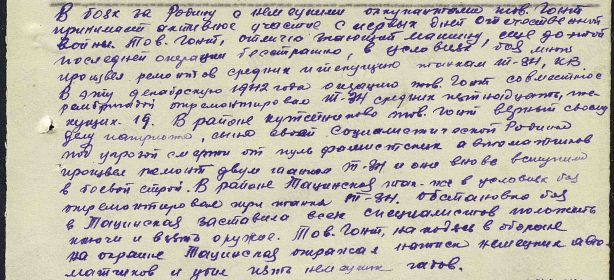 В боях за Родину с немецкими оккупантами тов. Гонт
принимает активное участие с первых дней отечественной
войны. Тов. Гонт, отлично знающий машину, еще до этой
последней операции бесстрашно, в условиях боя много
произвел ремонтов средних и текущих танкам Т-34, КВ.
В эту декабрьскую 1942 года операцию тов. Гонт совместно с
рембригадой отремонтировал Т-34 средних пятнадцать, те-
кущих - 19. В районе тов. Гонт верный своему
делу патриота, сына своей социалистической Родины
под угрозой смерти от пуль фашистских автоматчиков
произвел ремонт двум танкам Т-34 и они вновь вступили
в боевой строй. В районе Тацинская так-же в условиях боя
отремонтировал три танка Т-34. Обстановка боя
в Тацинская заставила всех специалистов положить
ключи и взять оружие. Тов. Гонт, находясь в обороне
на окраине Тацинская отражал натиск немецких авто-
матчиков и убил пять немецких гадов.